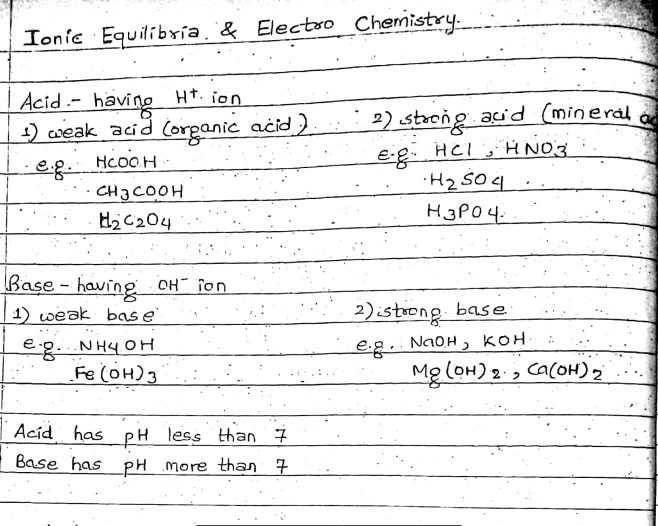 Ionic Equilibria & Electro Chemistry.
Acid :- having H+ ion
1) weak acid (organic acid) 2) strong acid (mineral
e.g. HCOOH e.g. HCl, HNO3
CH3COOH H2SO4
H2C2O4 H3PO4
Base - having OH- ion
1) weak base 2) strong base
e.g. NH4OH e.g. NaOH, KOH
Fe(OH)3 Mg(OH)2, Ca(OH)2
Acid has pH less than 7
Base has pH more than 7